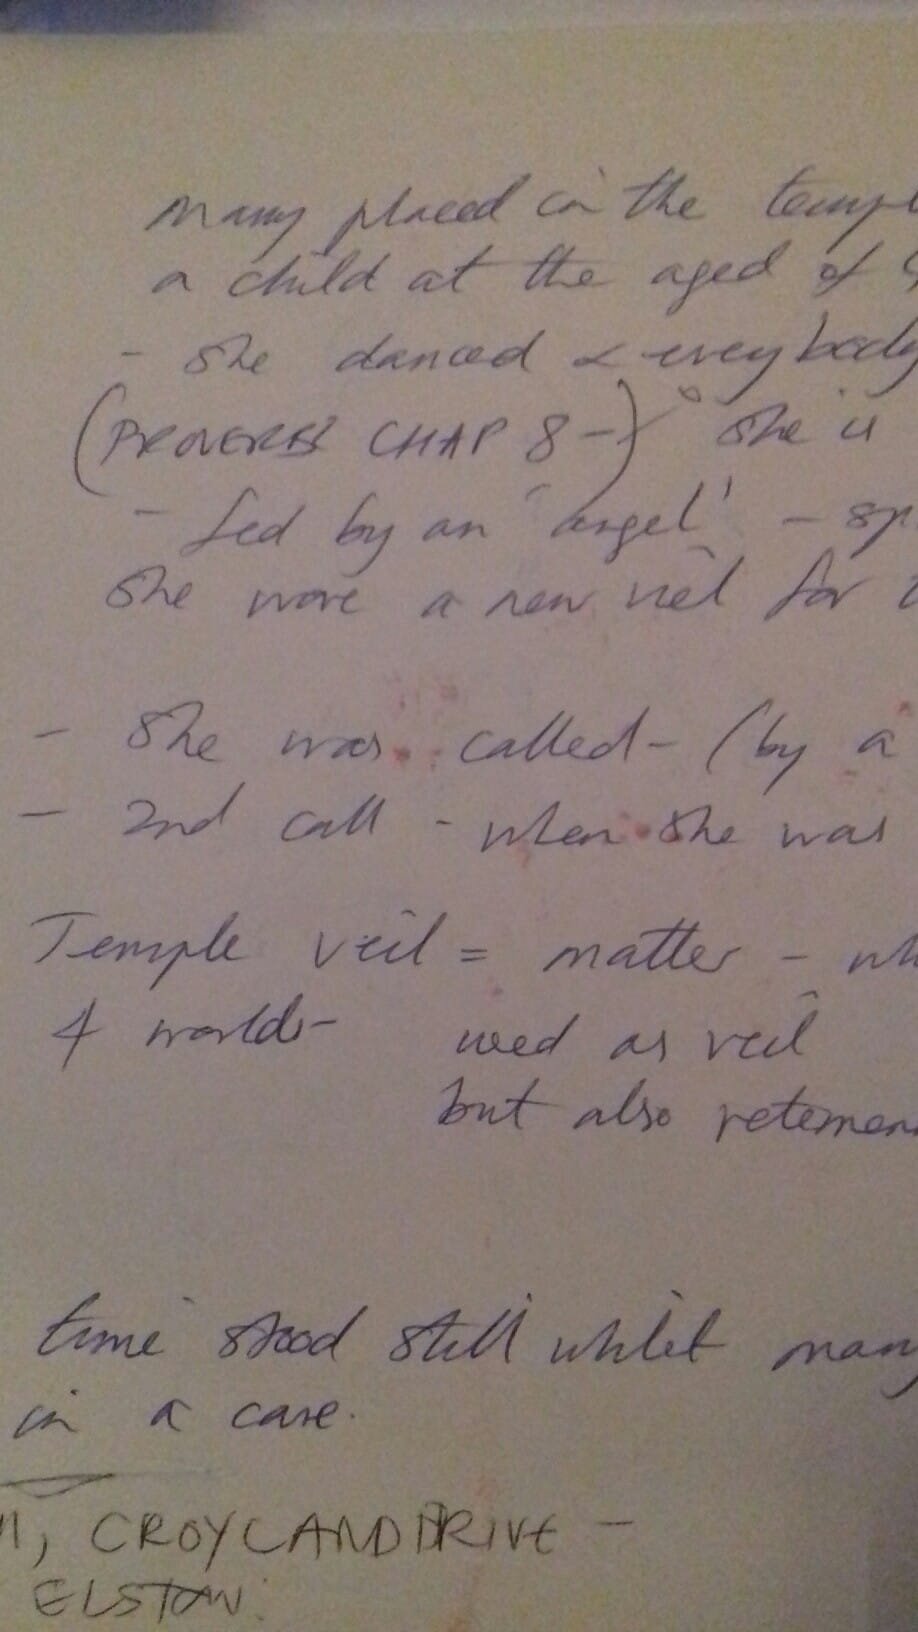 Mary placed in the templ
a child at the aged of
- She danced & everybody
(PROVERBS CHAP 8-) She is
- fed by an 'angel' - sp
She wore a new veil for
- She was called - (by a
- 2nd call - when she was
Temple veil = matter - wh
4 worlds- used as veil
but also vetemen
time stood still whilst mary
in a cave.
, CROYLAND DRIVE -
ELSTOW.